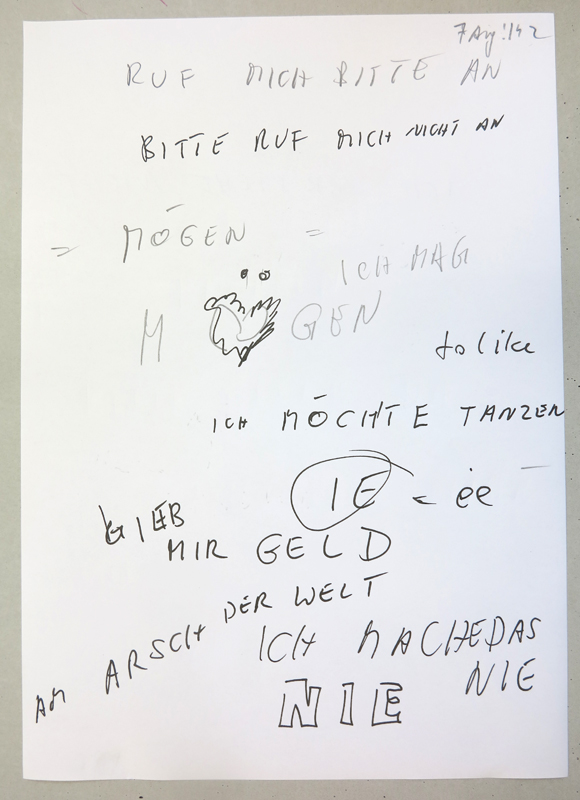 7 Aug '14 2
RUF MICH BITTE AN
BITTE RUF MICH NICHT AN
= MÖGEN =
ICH MAG
M GEN
to like
ICH MÖCHTE TANZEN
IE = ee
GIEB
MIR GELD
AM ARSCH DER WELT
ICH MACHE DAS
NIE
NIE